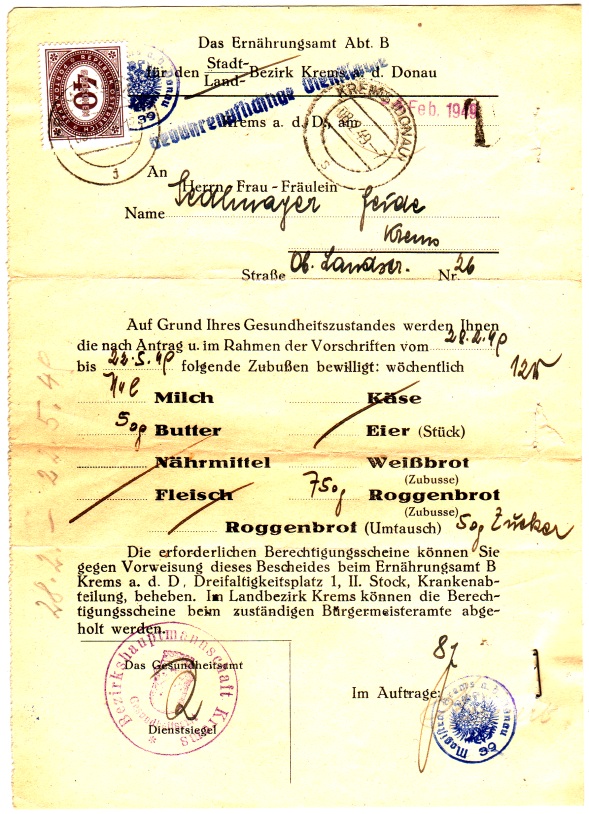 Das Ernährungsamt Abt. B
für den Stadt- Land- Bezirk Krems a. d. Donau
gebührenpflichtige Dienstsache
40
KREMS (DONAU)
Krems a. d. D., am Feb. 1949
1
An
Herrn-Frau-Fräulein
Name Sedlmayer
Krems
Straße Ob. Landstr. Nr. 26
Auf Grund Ihres Gesundheitszustandes werden Ihnen
die nach Antrag u. im Rahmen der Vorschriften vom 28.2.49
bis 22.5.49 folgende Zubußen bewilligt: wöchentlich
Milch Käse
50g Butter Eier (Stück)
Nährmittel Weißbrot
(Zubusse)
Fleisch 750g Roggenbrot
(Zubusse)
Roggenbrot (Umtausch) 50g Zucker
28.2. – 22.5.49
Die erforderlichen Berechtigungsscheine können Sie
gegen Vorweisung dieses Bescheides beim Ernährungsamt B
Krems a. d. D, Dreifaltigkeitsplatz 1, II. Stock, Krankenab-
teilung, beheben. Im Landbezirk Krems können die Berech-
tigungsscheine beim zuständigen Bürgermeisteramte abge-
holt werden.
Bezirkshauptmannschaft Krems
Das Gesundheitsamt
Dienstsiegel
Im Auftrage:
Magistrat Krems a. d. Donau
39